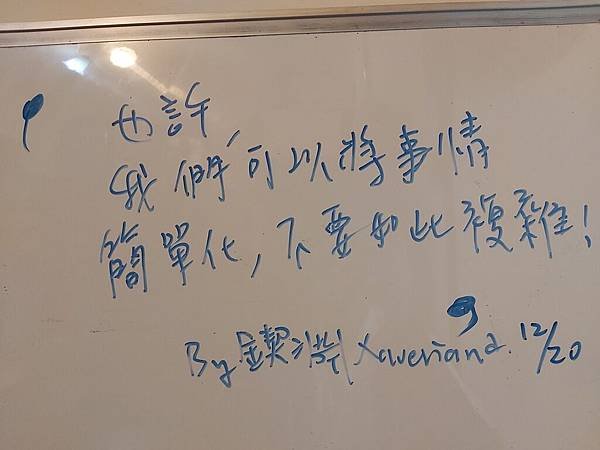 也許,
我們可以將事情
簡單化,不要如此複雜!
By 12/20